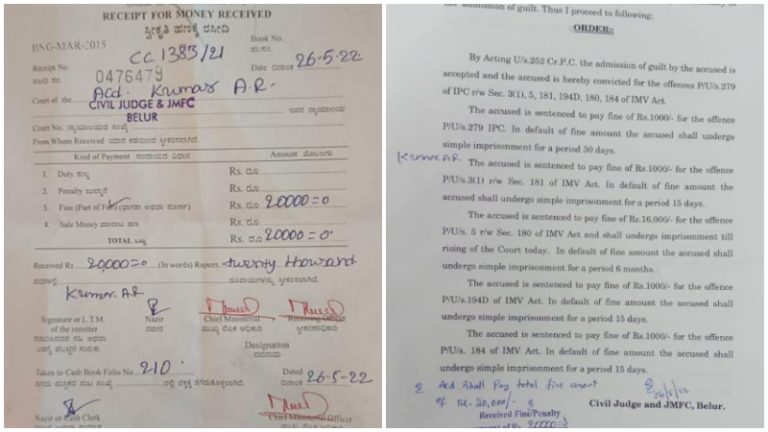 RECEIPT FOR MONEY RECEIVED
ಸ್ವೀಕೃತಿ ಹಣಕ್ಕೆ ರಸೀದಿ
BNG-MAR-2015
Book No.
CC 1383/21
Receipt No.
0476479
Date ದಿನಾಂಕ 26-5-22
Acd. Kumar A.R.
Court of the
CIVIL JUDGE & JMFC
BELUR
Court No.
From Whom Received
Kind of Payment ಸಂದಾಯದ ವಿಧಾನ
Amount ಮೊಬಲಗು
1. Duty ಸುಂಕ
Rs. ರೂ
2. Penalty ಜುಲ್ಮಾನೆ
Rs. ರೂ
3. Fine (Part of Full)
Rs. ರೂ 20000=0
4. Sale Money
Rs. ರೂ
TOTAL ಒಟ್ಟು
Rs. ರೂ 20000=0
Received Rs 20000=0 (In words) Rupees twenty thousand
Kumar. AR
Signature or L.T.M.
of the remitter
Nazir
ನಜೀರ
Chief Ministerial
Receiving Officer
Designation
ಪದನಾಮ
Taken in Cash Book Folio No 210
Dated 26-5-22
ದಿನಾಂಕ
Nazir or Cash Clerk
Chief Ministerial Officer
admission of guilt. Thus I proceed to following,
:ORDER:
By Acting U/s.252 Cr.P.C. the admission of guilt by the accused is
accepted and the accused is hereby convicted for the offences P/U/s.279
of IPC r/w Sec. 3(1), 5, 181, 194D, 180, 184 of IMV Act.
The accused is sentenced to pay fine of Rs.1000/- for the offence
P/U/s.279 IPC. In default of fine amount the accused shall undergo
simple imprisonment for a period 30 days.
Kumar AR
The accused is sentenced to pay fine of Rs.1000/- for the offence
P/U/s.3(1) r/w Sec. 181 of IMV Act. In default of fine amount the
accused shall undergo simple imprisonment for a period 15 days.
The accused is sentenced to pay fine of Rs.16,000/- for the offence
P/U/s. 5 r/w Sec. 180 of IMV Act and shall undergo imprisonment till
rising of the Court today. In default of fine amount the accused shall
undergo simple imprisonment for a period 6 months.
The accused is sentenced to pay fine of Rs.1000/- for the offence
P/U/s.194D of IMV Act. In default of fine amount the accused shall
undergo simple imprisonment for a period 15 days.
The accused is sentenced to pay fine of Rs.1000/- for the offence
P/U/s. 184 of IMV Act. In default of fine amount the accused shall
undergo simple imprisonment for a period 15 days.
Acd Shall Pay total fine amount
of Rs. 20,000/-
Civil Judge and JMFC, Belur.
Received Fine/Penalty
amount of Rs. 20000=0